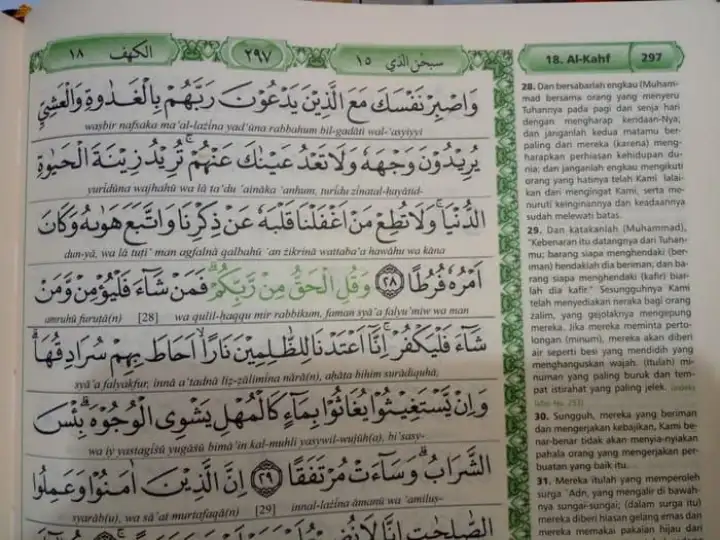 الكهف ١٨
٢٩٧
سبحن الذي ١٥
وَاصْبِرْ نَفْسَكَ مَعَ الَّذِيْنَ يَدْعُوْنَ رَبَّهُمْ بِالْغَدٰوةِ وَالْعَشِيِّ
waṣbir nafsaka ma‘al-lażīna yad‘ūna rabbahum bil-gadāti wal-‘asyiyyi
يُرِيْدُوْنَ وَجْهَهٗ وَلَا تَعْدُ عَيْنٰكَ عَنْهُمْۚ تُرِيْدُ زِيْنَةَ الْحَيٰوةِ
yurīdūna wajhahū wa lā ta‘du ‘aināka ‘anhum, turīdu zīnatal-ḥayātid-
الدُّنْيَاۚ وَلَا تُطِعْ مَنْ اَغْفَلْنَا قَلْبَهٗ عَنْ ذِكْرِنَا وَاتَّبَعَ هَوٰىهُ وَكَانَ
dun-yā, wa lā tuṭi‘ man agfalnā qalbahū ‘an żikrinā wattaba‘a hawāhu wa kāna
اَمْرُهٗ فُرُطًا ٢٨ وَقُلِ الْحَقُّ مِنْ رَّبِّكُمْۗ فَمَنْ شَاۤءَ فَلْيُؤْمِنْ وَّمَنْ
amruhū furuṭā(n) [28] wa qulil-ḥaqqu mir rabbikum, faman syā'a falyu'miw wa man
شَاۤءَ فَلْيَكْفُرْۚ اِنَّآ اَعْتَدْنَا لِلظّٰلِمِيْنَ نَارًاۙ اَحَاطَ بِهِمْ سُرَادِقُهَاۗ
syā'a falyakfur, innā a‘tadnā liẓ-ẓālimīna nārā(n), aḥāṭa bihim surādiquhā,
وَاِنْ يَّسْتَغِيْثُوْا يُغَاثُوْا بِمَاۤءٍ كَالْمُهْلِ يَشْوِى الْوُجُوْهَۗ بِئْسَ
wa iy yastagīṡū yugāṡū bimā'in kal-muhli yasywil-wujūh(a), bi'sasy-
الشَّرَابُۗ وَسَاۤءَتْ مُرْتَفَقًا ٢٩ اِنَّ الَّذِيْنَ اٰمَنُوْا وَعَمِلُوا
syarāb(u), wa sā'at murtafaqā(n) [29] innal-lażīna āmanū wa ‘amiluṣ-
الصّٰلِحٰتِ اِنَّا لَا نُضِيْعُ
18. Al-Kahf 297
28. Dan bersabarlah engkau (Muham-
mad bersama orang yang menyeru
Tuhannya pada pagi dan senja hari
dengan mengharap keridaan-Nya;
dan janganlah kedua matamu ber-
paling dari mereka (karena) meng-
harapkan perhiasan kehidupan du-
nia; dan janganlah engkau mengikuti
orang yang hatinya telah Kami lalai-
kan dari mengingat Kami, serta me-
nuruti keinginannya dan keadaannya
sudah melewati batas.
29. Dan katakanlah (Muhammad),
"Kebenaran itu datangnya dari Tuhan-
mu; barang siapa menghendaki (ber-
iman) hendaklah dia beriman, dan ba-
rang siapa menghendaki (kafir) biar-
lah dia kafir." Sesungguhnya Kami
telah menyediakan neraka bagi orang
zalim, yang gejolaknya mengepung
mereka. Jika mereka meminta perto-
longan (minum), mereka akan diberi
air seperti besi yang mendidih yang
menghanguskan wajah. (Itulah) mi-
numan yang paling buruk dan tem-
pat istirahat yang paling jelek.
30. Sungguh, mereka yang beriman
dan mengerjakan kebajikan, Kami be-
nar-benar tidak akan menyia-nyiakan
pahala orang yang mengerjakan per-
buatan yang baik itu.
31. Mereka itulah yang memperoleh
surga ‘Adn, yang mengalir di bawah-
nya sungai-sungai; (dalam surga itu)
mereka diberi hiasan gelang emas dan
mereka memakai pakaian hijau dari